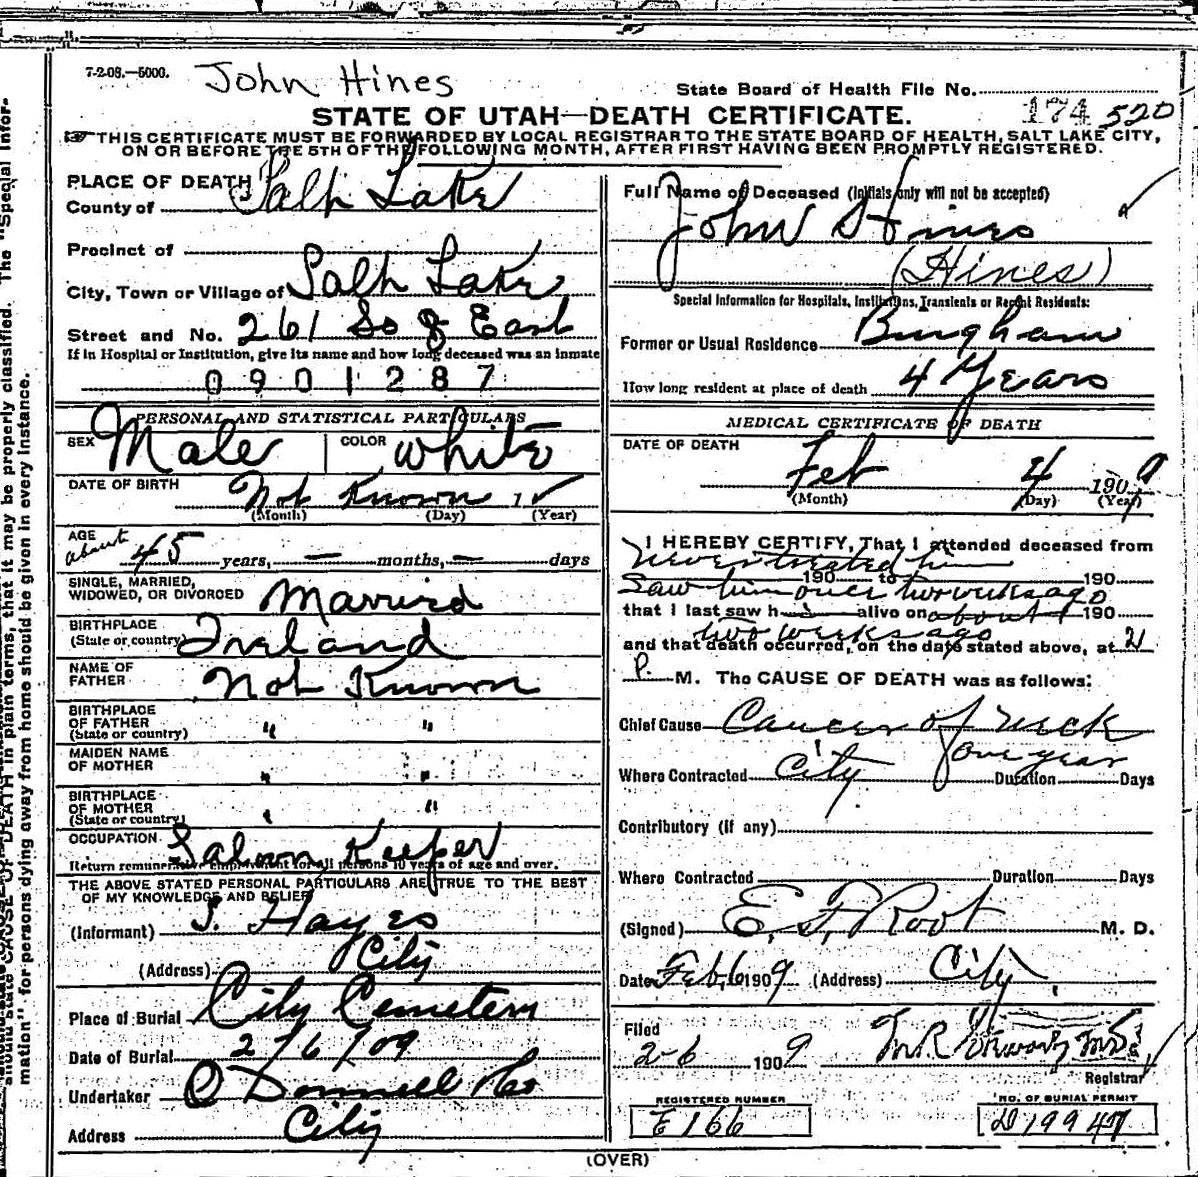 7-2-08.—5000.
John Hines
State Board of Health File No.
174 520
STATE OF UTAH—DEATH CERTIFICATE.
THIS CERTIFICATE MUST BE FORWARDED BY LOCAL REGISTRAR TO THE STATE BOARD OF HEALTH, SALT LAKE CITY,
ON OR BEFORE THE 5TH OF THE FOLLOWING MONTH, AFTER FIRST HAVING BEEN PROMPTLY REGISTERED.
PLACE OF DEATH
County of Salt Lake
Precinct of
City, Town or Village of Salt Lake
Street and No. 261 So 8 East
If in Hospital or Institution, give its name and how long deceased was an inmate
0901287
PERSONAL AND STATISTICAL PARTICULARS
SEX Male COLOR White
DATE OF BIRTH Not Known 1
(Month) (Day) (Year)
AGE
about 45 years, — months, — days
SINGLE, MARRIED,
WIDOWED, OR DIVORCED Married
BIRTHPLACE
(State or country) Ireland
NAME OF
FATHER Not Known
BIRTHPLACE
OF FATHER
(State or country) " "
MAIDEN NAME
OF MOTHER " "
BIRTHPLACE
OF MOTHER
(State or country) " "
OCCUPATION Saloon Keeper
Return remunerative employment for all persons 10 years of age and over.
THE ABOVE STATED PERSONAL PARTICULARS ARE TRUE TO THE BEST
OF MY KNOWLEDGE AND BELIEF
(Informant) J. Hayes
(Address) City
Place of Burial City Cemetery
Date of Burial 2/6/09
Undertaker O Donnell & Co
Address City
Full Name of Deceased (Initials only will not be accepted)
John Hines
(Hines)
Special Information for Hospitals, Institutions, Transients or Recent Residents:
Former or Usual Residence Bingham
How long resident at place of death 4 Years
MEDICAL CERTIFICATE OF DEATH
DATE OF DEATH
Feb 4 1909
(Month) (Day) (Year)
I HEREBY CERTIFY, That I attended deceased from
Never treated him
190 to 190
Saw him once two weeks ago
that I last saw h alive on about 190
two weeks ago
and that death occurred, on the date stated above, at 2
P. M. The CAUSE OF DEATH was as follows:
Chief Cause Cancer of neck
one year
Where Contracted City Duration Days
Contributory (if any)
Where Contracted Duration Days
(Signed) E. F. Root M. D.
Date Feb. 6 1909 (Address) City
Filed
2-6 1909
Registrar
REGISTERED NUMBER
E 166
NO. OF BURIAL PERMIT
D 19947
(OVER)
mation" for persons dying away from home should be given in every instance.
should state CAUSE OF DEATH in plain terms, that it may be properly classified. The "Special Infor-